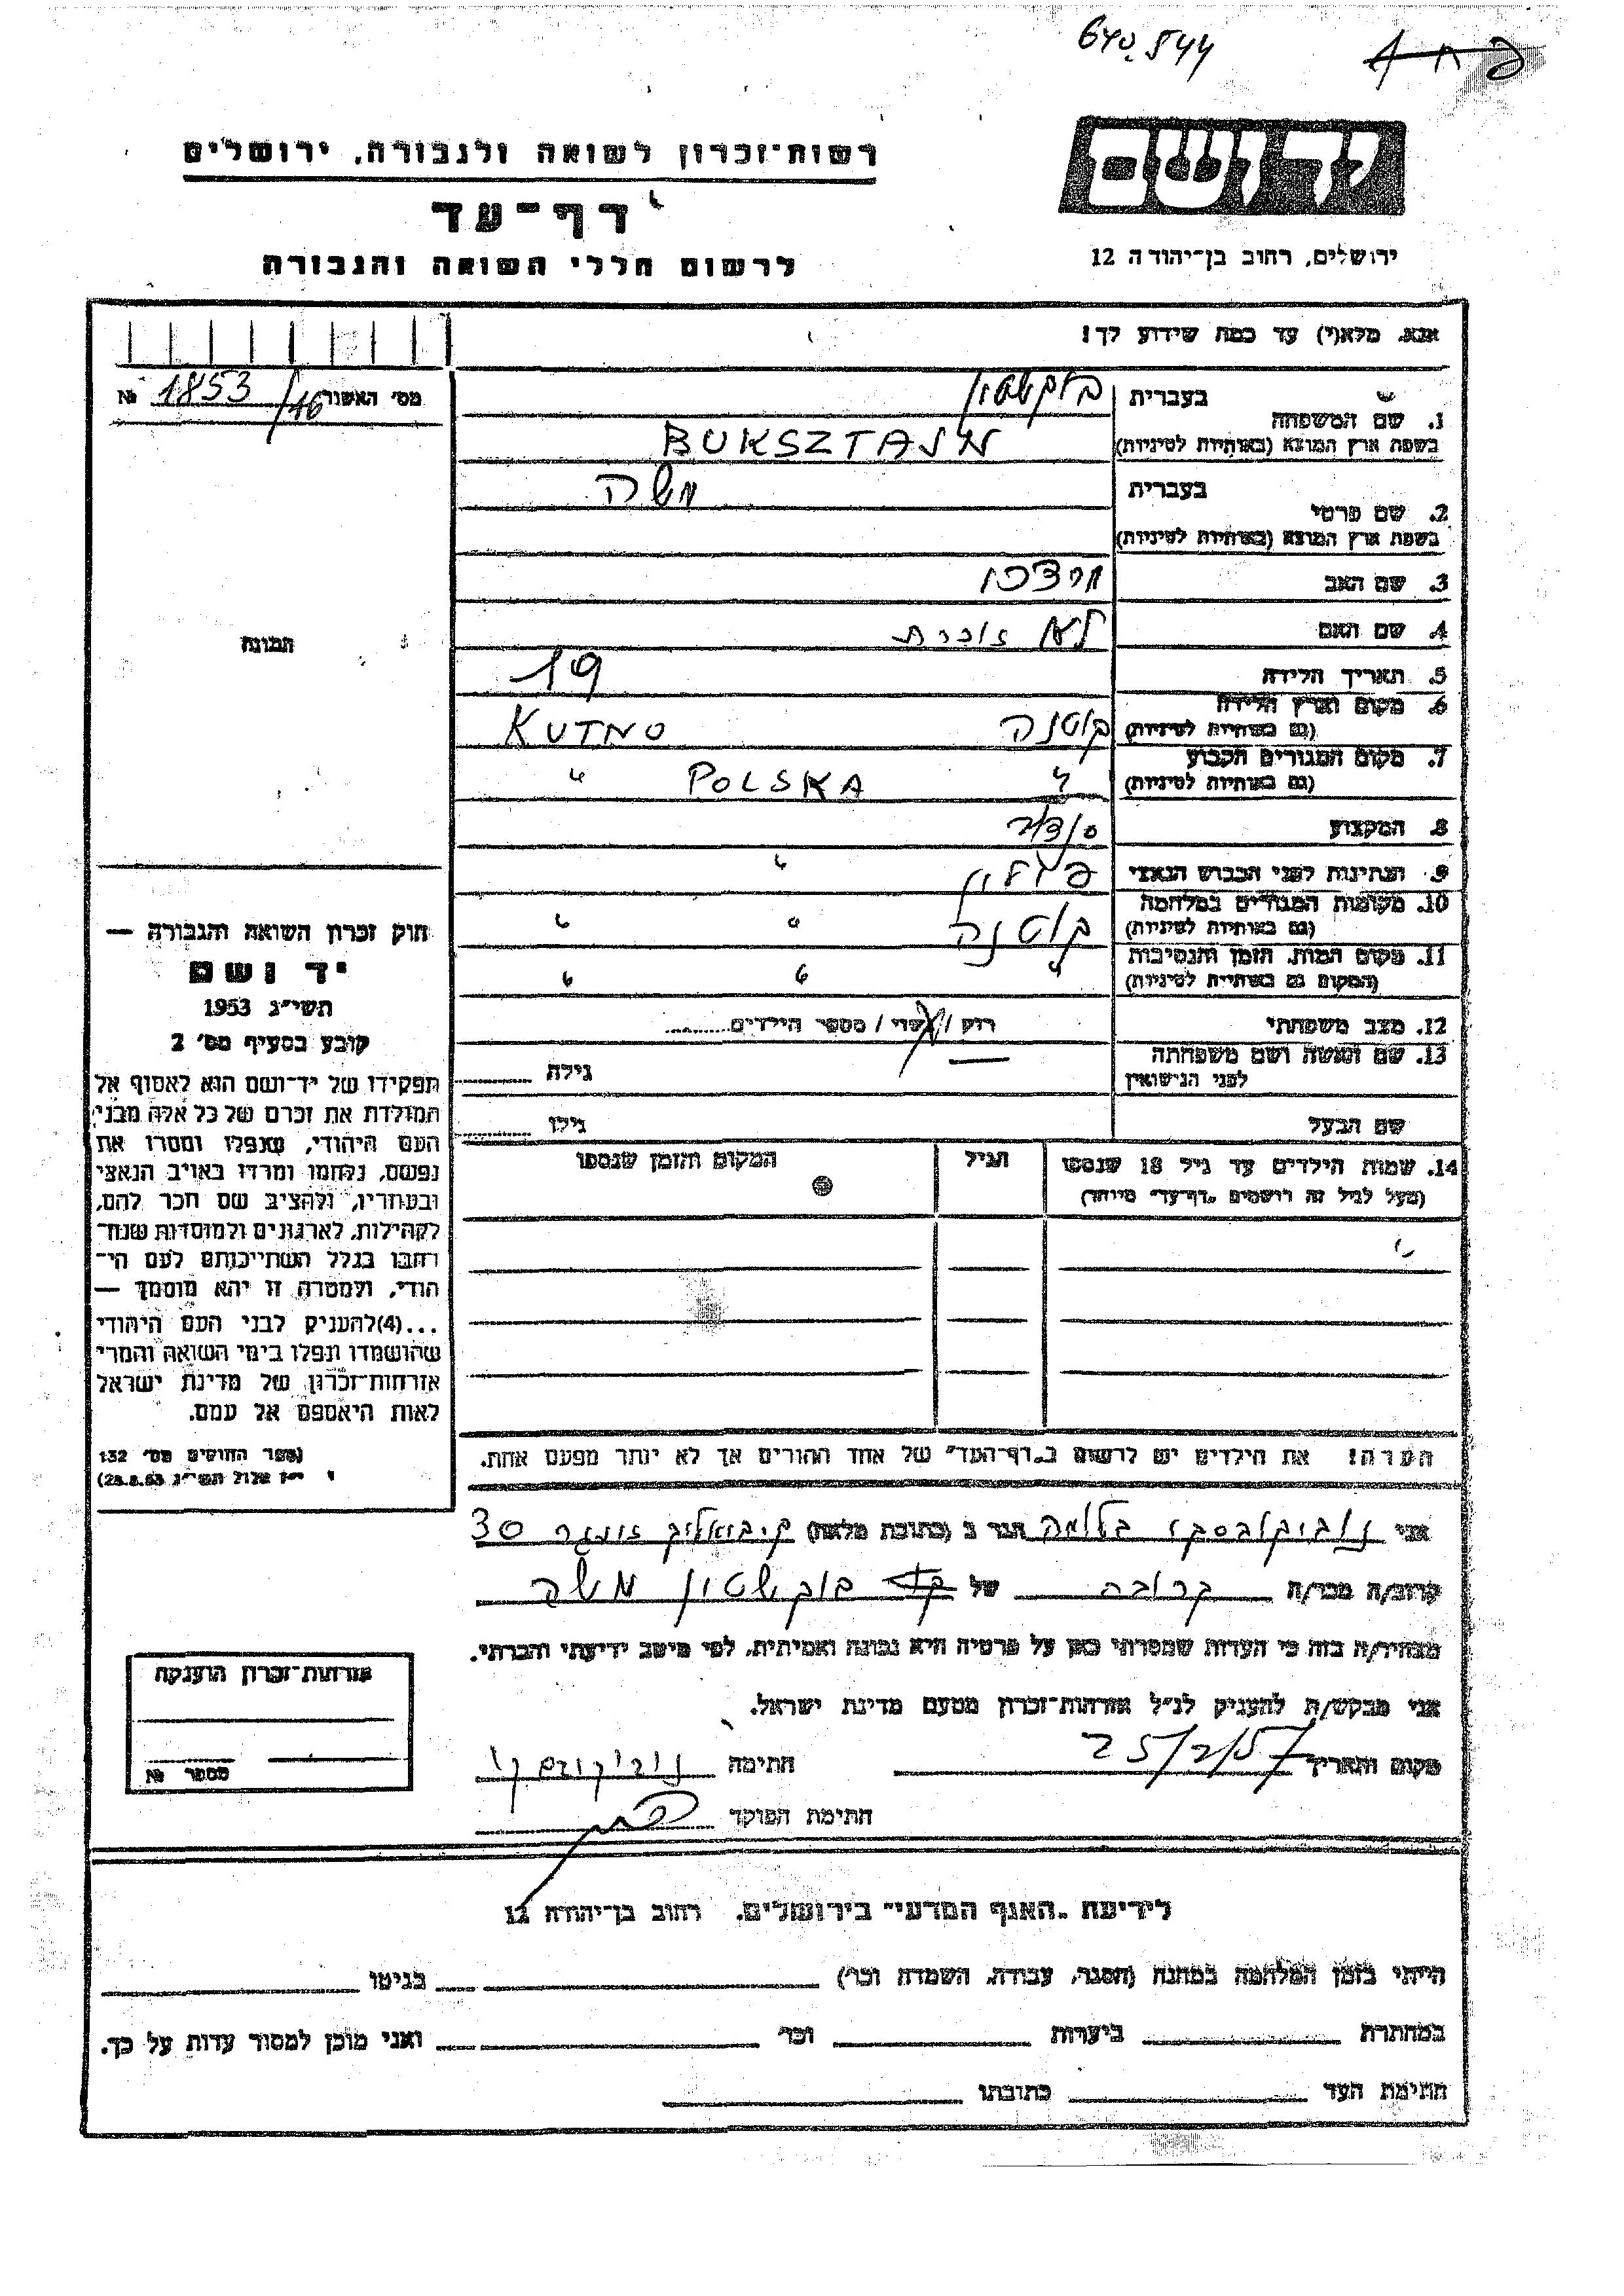 640,544
רשות־זכרון לשואה ולגבורה, ירושלים
יד ושם
דף־עד
ירושלים, רחוב בן־יהודה 12
לרשום חללי השואה והגבורה
אנא, מלא(י) עד כמה שידוע לך!
מס׳ האשור 1853/16 №
1. שם המשפחה בעברית בוקשטיין
בשפת ארץ המוצא (באותיות לטיניות) BUKSZTAJN
2. שם פרטי בעברית משה
בשפת ארץ המוצא (באותיות לטיניות)
3. שם האב מרדכי
4. שם האם לא זוכרת
התמונה
5. תאריך הלידה 19
6. מקום וארץ הלידה (גם באותיות לטיניות) קוטנה KUTNO
7. מקום המגורים הקבוע (גם באותיות לטיניות) " POLSKA "
8. המקצוע
9. הנתינות לפני הכבוש הנאצי פולין "
10. מקומות המגורים במלחמה (גם באותיות לטיניות) קוטנה " "
11. מקום המות, הזמן והנסיבות (המקום גם באותיות לטיניות) " " "
12. מצב משפחתי רווק / נשוי / מספר הילדים
13. שם האשה ושם משפחתה לפני הנישואין — גילה
שם הבעל גילו
14. שמות הילדים עד גיל 18 שנספו הגיל המקום והזמן שנספו
(מעל לגיל זה רושמים „דף־עד״ מיוחד)
חוק זכרון השואה והגבורה —
יד ושם
תשי״ג 1953
קובע בסעיף מס׳ 2
תפקידו של יד־ושם הוא לאסוף אל
המולדת את זכרם של כל אלה מבני
העם היהודי, שנפלו ומסרו את
נפשם, נלחמו ומרדו באויב הנאצי
ובעוזריו, ולהציב שם וזכר להם,
לקהילות, לארגונים ולמוסדות שנח־
רבו בגלל השתייכותם לעם הי־
הודי, ולמטרה זו יהא מוסמך —
...(4)להעניק לבני העם היהודי
שהושמדו ונפלו בימי השואה והמרי
אזרחות־זכרון של מדינת ישראל
לאות היאספם אל עמם.
(ספר החוקים מס׳ 132
י״ז אלול תשי״ג 28.8.53)
הערה! את הילדים יש לרשום ב„דף־העד״ של אחד ההורים אך לא יותר מפעם אחת.
אני נוביקובסקי בלומה הגר ב (כתובת מלאה) ק.ביאליק זומגר 30
קרוב/ה מכר/ה קרובה של בוקשטיין משה
מצהיר/ה בזה כי העדות שמסרתי כאן על פרטיה היא נכונה ואמיתית, לפי מיטב ידיעתי והכרתי.
אני מבקש/ת להעניק לנ״ל אזרחות־זכרון מטעם מדינת ישראל.
מקום ותאריך 25/2/57 חתימה נוביקובסקי
חתימת הפוקד
אזרחות־זכרון הוענקה
מספר №
לידיעת „האגף המדעי״ בירושלים, רחוב בן־יהודה 12
הייתי בזמן המלחמה במחנה (הסגר, עבודה, השמדה וכו׳) בגיטו
במחתרת ביערות וכו׳ ואני מוכן למסור עדות על כך.
חתימת העד כתובתו